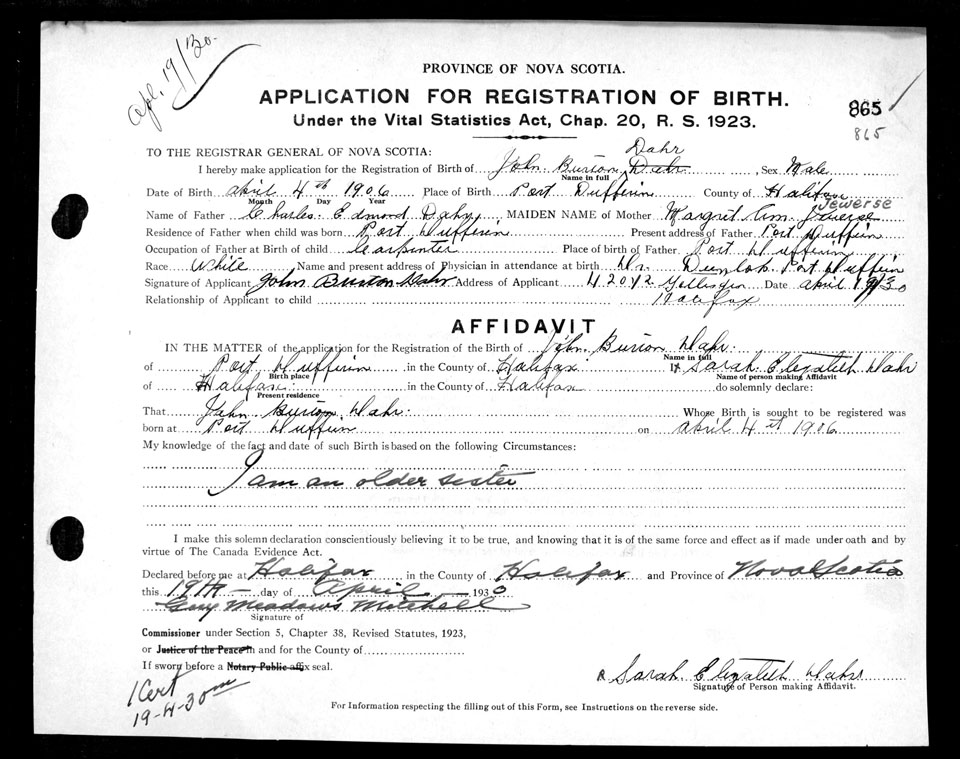 Apl. 19/30.
PROVINCE OF NOVA SCOTIA.
APPLICATION FOR REGISTRATION OF BIRTH.
865
Under the Vital Statistics Act, Chap. 20, R. S. 1923.
865
TO THE REGISTRAR GENERAL OF NOVA SCOTIA:
Dahr
I hereby make application for the Registration of Birth of John Burton Dahr Sex Male
Name in full
Date of Birth April 4th 1906 Place of Birth Port Dufferin County of Halifax
Month Day Year
Jewerse
Name of Father Charles Edmond Dahr MAIDEN NAME of Mother Margrit Ann
Residence of Father when child was born Port Dufferin Present address of Father Port Dufferin
Occupation of Father at Birth of child Carpenter Place of birth of Father Port Dufferin
Race White Name and present address of Physician in attendance at birth Dr. Port Dufferin
Signature of Applicant John Burton Dahr Address of Applicant Date April 19/30
Halifax
Relationship of Applicant to child
AFFIDAVIT
IN THE MATTER of the application for the Registration of the Birth of John Burton Dahr.
Name in full
of Port Dufferin in the County of Halifax I, Sarah Elizabeth Dahr
Birth place Name of person making Affidavit
of Halifax in the County of Halifax do solemnly declare:
Present residence
That John Burton Dahr. Whose Birth is sought to be registered was
born at Port Dufferin on April 4th 1906
My knowledge of the fact and date of such Birth is based on the following Circumstances:
I am an older sister
I make this solemn declaration conscientiously believing it to be true, and knowing that it is of the same force and effect as if made under oath and by
virtue of The Canada Evidence Act.
Declared before me at Halifax in the County of Halifax and Province of Nova Scotia
this 19th day of April 1930
Guy Meadows Mitchell
Signature of
Commissioner under Section 5, Chapter 38, Revised Statutes, 1923,
or Justice of the Peace in and for the County of
If sworn before a Notary Public affix seal.
Sarah Elizabeth Dahr
Signature of Person making Affidavit.
1 Cert
19-4-30
For Information respecting the filling out of this Form, see Instructions on the reverse side.